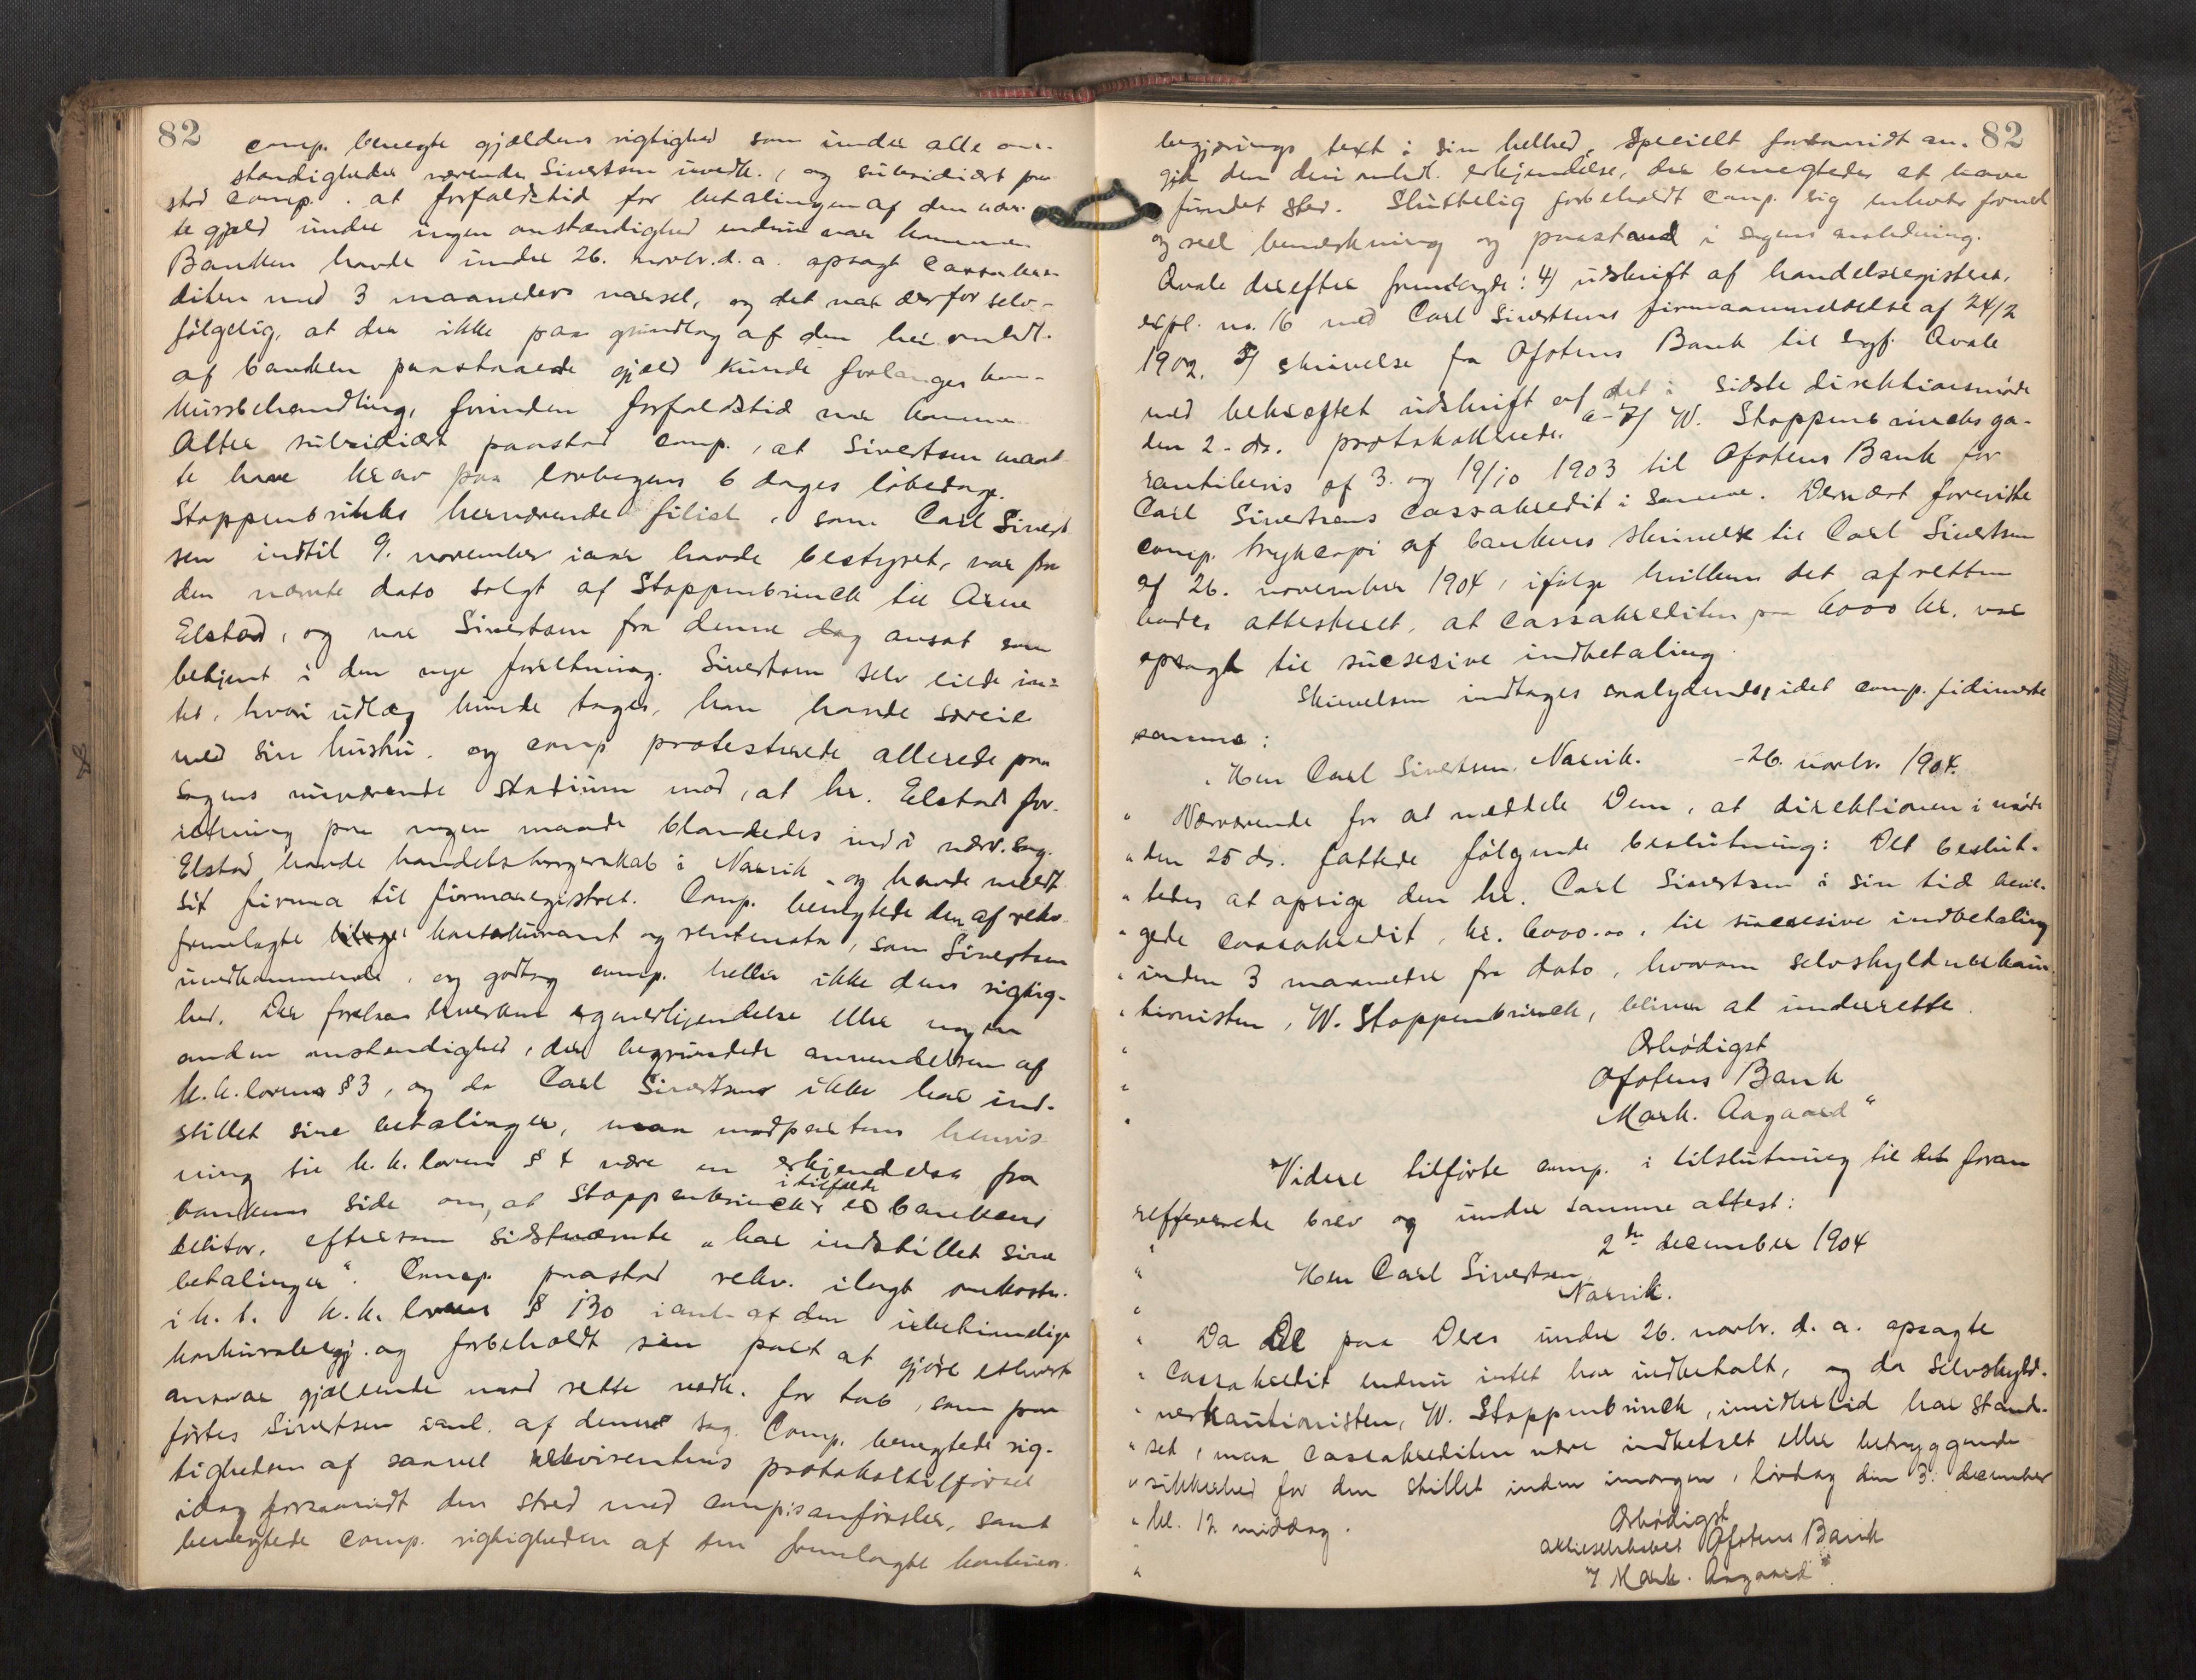 82
comp. benegte gjældens rigtighed som under alle om-
stændigheder værende Sivertsen uvedk., og subsidiært paa-
stod comp. at forfaldstid for betalingen af den
te gjæld under ingen omstændighed endnu var kommen
Banken havde under 26. novbr. d. a. opsagt Cassakre-
diten med 3 maaneders varsel, og det var derfor selv-
følgelig, at der ikke paa grundlag af den her omhdl.
af banken paastaaede gjæld kunde forlanges kon-
kursbehandling, forinden forfaldstid var kommen
Atter subsidiært paastod comp., at Sivertsen maat
te have krav paa lovbogens 6 dages løbedage.
Stoppenbrinks herværende filial, som Carl Sivert
sen indtil 9. november iaar havde bestyret, var fra
den nævnte dato solgt af Stoppenbrinck til Arne
Elstad, og var Sivertsen fra denne dag ansat som
betjent i den nye forretning. Sivertsen selv eiede in-
tet, hvori udlæg kunde tages, han havde særeie
med sin hustru. og comp protesterede allerede paa
sagens nuværende stadium mod, at hr. Elstads for-
retning paa nogen maade blandedes ind i nærv. sag.
Elstad havde handelsborgerskab i Narvik og havde meldt
sit firma til firmaregistret. Comp. benegtede den af rekv.
fremlagte kontokurant og rentenota, som Sivertsen
uvedkommende, og godtog comp. heller ikke dens rigtig-
hed. Der forelaa hverken egenerkjendelse eller nogen
anden omstændighed, der begrundede anvendelsen af
k.k.lovens §3, og da Carl Sivertsen ikke har ind-
stillet sine betalinger, maa modpartens henvis
ning til k.k. loven § 4 være en erkjendelse fra
bankens side om, at Stoppenbrinck i tilfælde er bankens
debitor, eftersom sidstnævnte „har indstillet sine
betalinger“. Comp. paastod rekv. ilagt omkostn.
i h. t. k.k. loven § 130 i anl. af den ubehændige
konkursbegj. og forbeholdt sin part at gjøre ethvert
ansvar gjældende mod rette vedk. for tab, som paa
førtes Sivertsen i anl. af denne sag. Comp. benegtede rig-
tigheden af saavel rekvirentens protokoltilførsel
idag forsaavidt den stred med comp:s anførsler, samt
benegtede comp. rigtigheden af den fremlagte konkurs-
82
begjærings text i sin helhed, specielt forsaavidt an-
gik den deri omhdl. erkjendelse, der benegtedes at have
fundet sted. Sluttelig forbeholdt comp. sig enhver formel
og reel bemærkning og paastand i sagens anledning.
Qvale derefter fremlagde: 4) udskrift af handelsregisteret,
expl. no. 16 med Carl Sivertsens firmaanmeldelse af 24/2
1902. 5) skrivelse fra Ofotens Bank til sagf. Qvale
med bekræftet udskrift af det i sidste direktionsmøde
den 2. ds. protokollerede. 6-7) W. Stoppenbrincks ga-
rantibevis af 3. og 19/10 1903 til Ofotens Bank for
Carl Sivertsens Cassakredit i samme. Dernæst foreviste
comp. trykcopi af bankens skrivelse til Carl Sivertsen
af 26. november 1904, ifølge hvilken det af retten
bedes attesteret, at cassakrediten paa 6000 kr. var
opsagt til sucsesive indbetaling.
Skrivelsen indtages saalydende, idet comp. fidimerte
samme:
„Herr Carl Sivertsen, Narvik. - 26. novbr. 1904.
„ Nærværende for at meddele Dem, at direktionen i møde
„ den 25 ds. fattede følgende beslutning: Det beslut-
„ tedes at opsige den hr. Carl Sivertsen i sin tid bevil-
„ gede cassakredit, kr. 6000.00, til sucsesive indbetaling
„ inden 3 maaneder fra dato, hvorom selvskyldnerkau-
„ tionisten, W. Stoppenbrinck, bliver at underrette.
„ Ærbødigst
„ Ofotens Bank
„ Mark. Aagaard“
Videre tilførte comp. i tilslutning til det foran
refererede brev og under samme attest:
„ 2den december 1904
„ Herr Carl Sivertsen
„ Narvik.
„ Da De paa Deres under 26. novbr. d. a. opsagte
„ Cassakredit endnu intet har indbetalt, og da selvskyld-
„ nerkautionisten, W. Stoppenbrinck, imidlertid har stand-
„ set, maa cassakrediten være indbetalt eller betryggende
„ sikkerhed for den stillet inden imorgen, lørdag den 3. december
„ kl. 12 middag.
Ærbødigst
„ aktieselskabet Ofotens Bank
„ Mark. Aagaard“